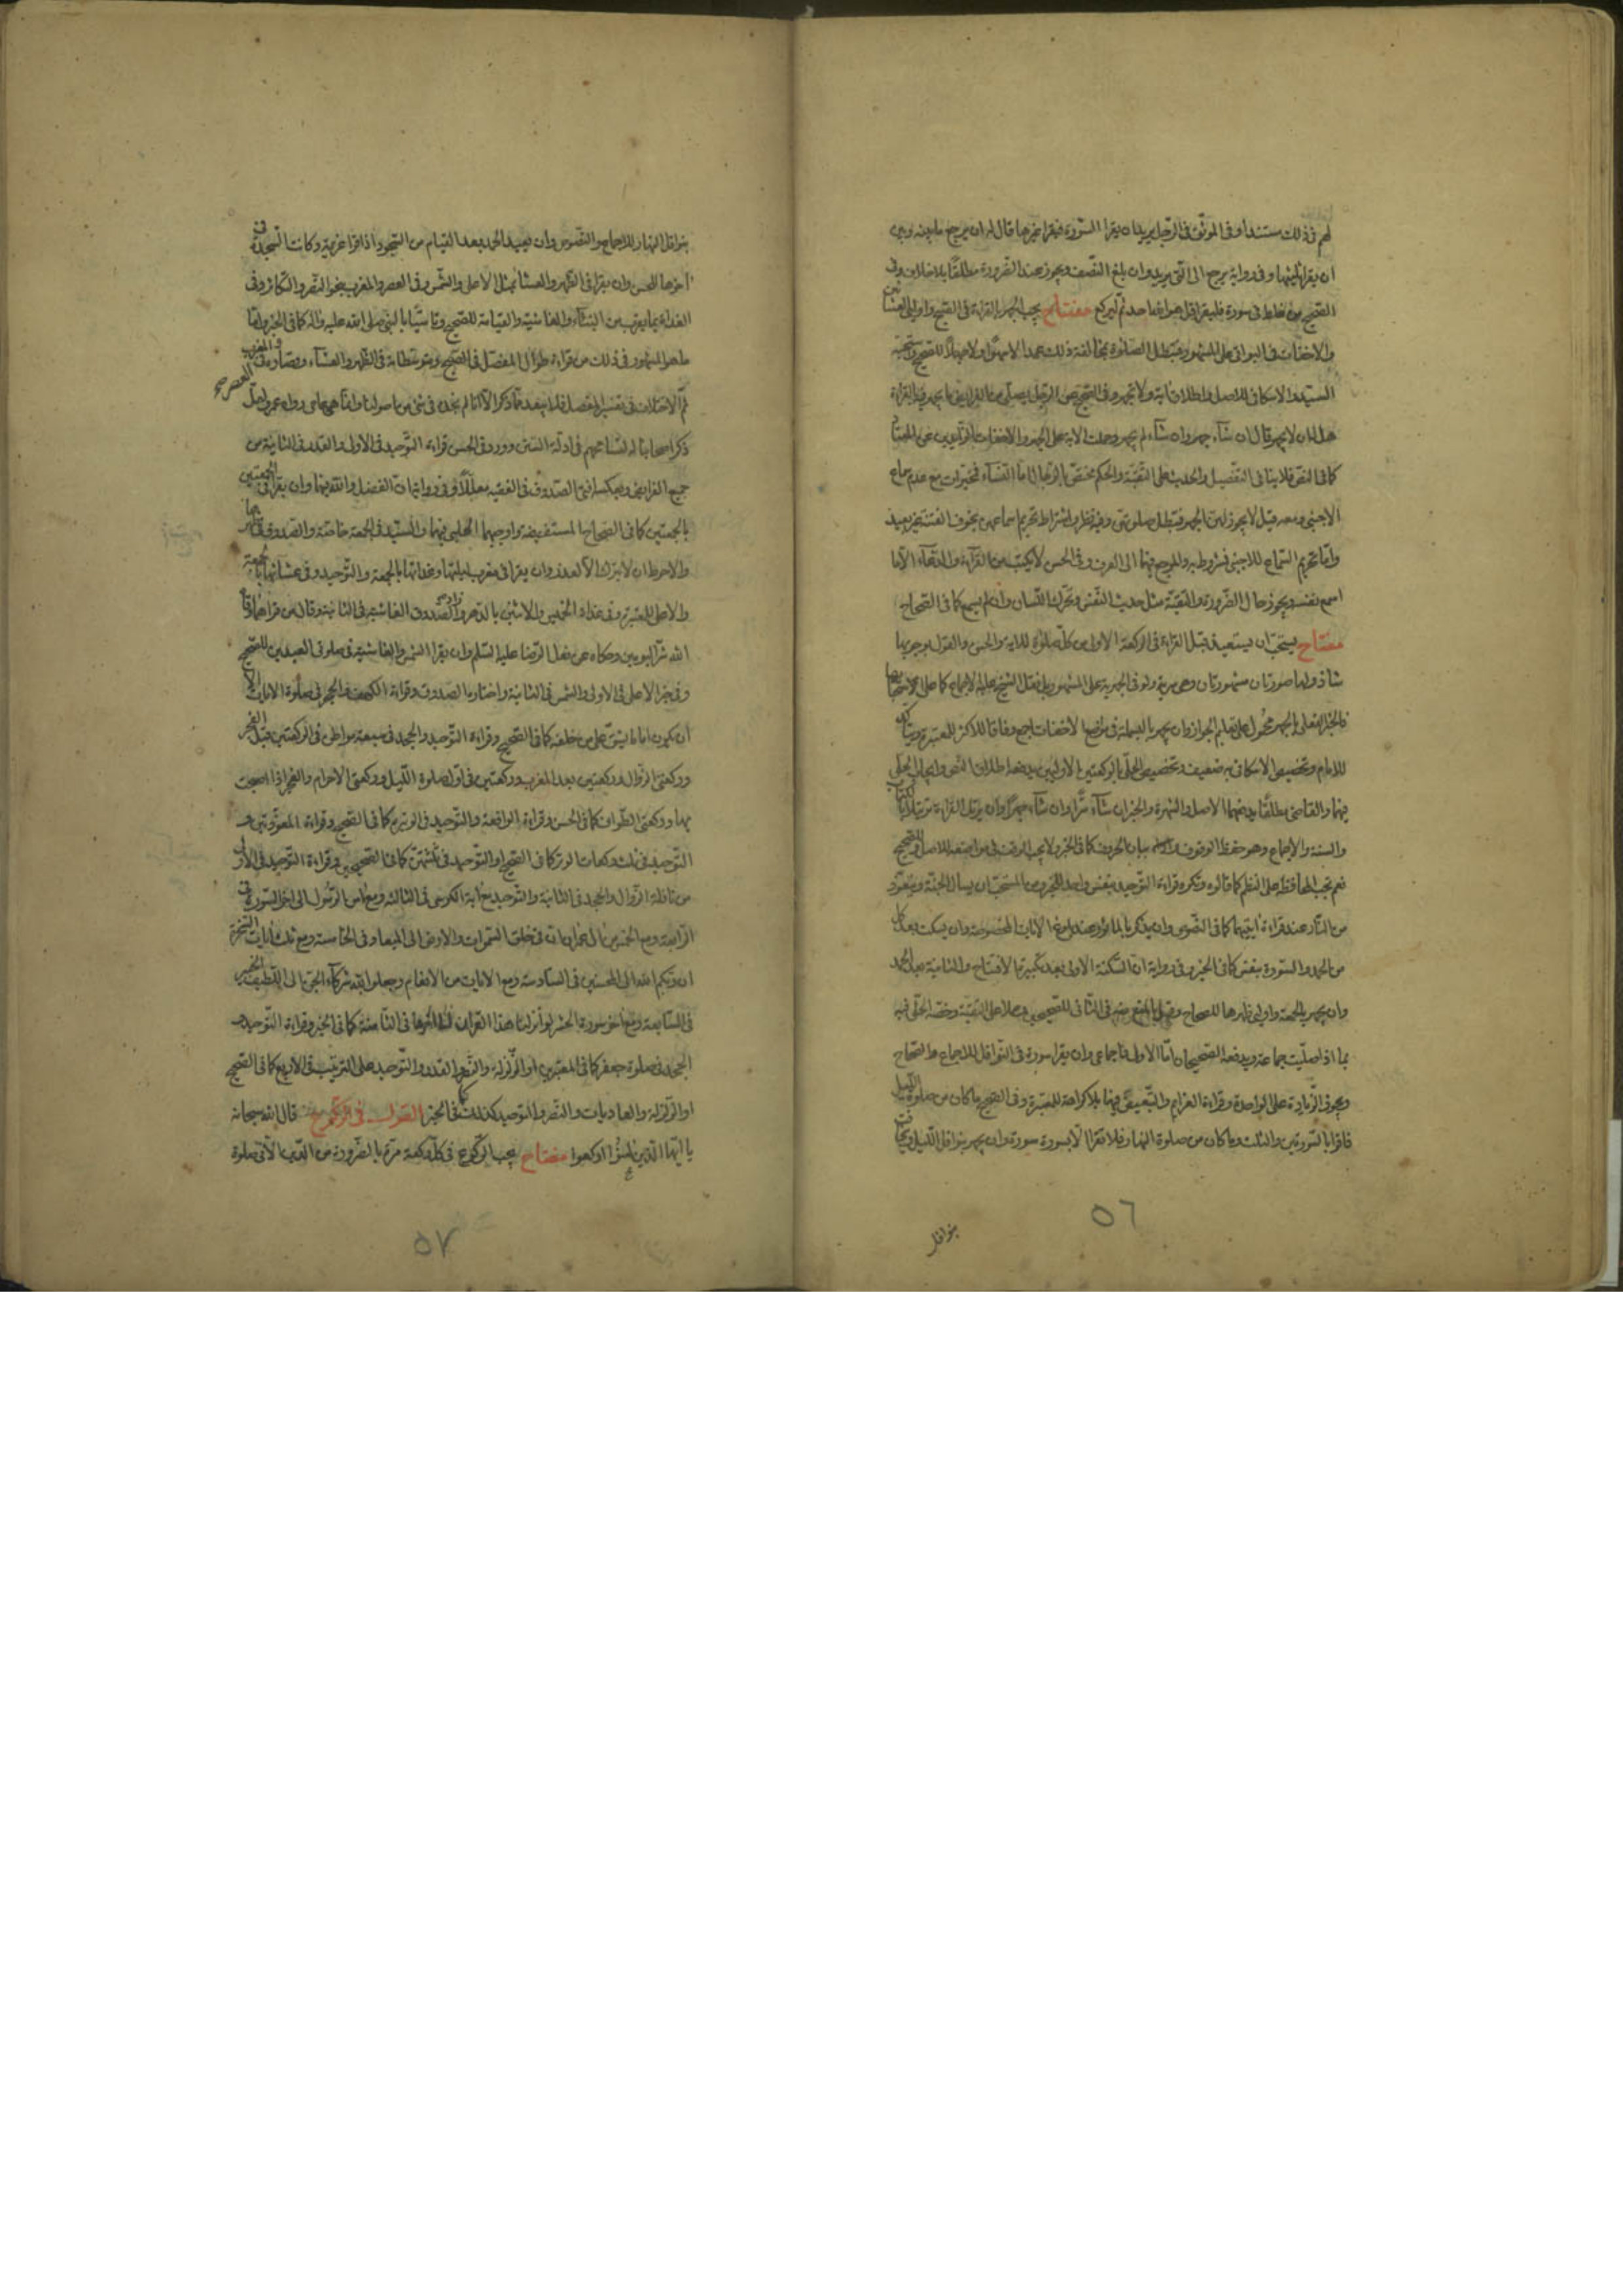 لهم في ذلك مستندا وفي الموثق في الرجل يريد ان يقرا السورة فيقرا غيرها قال له ان يرجع ما بينه وبين
ان يقرا ثلثيها وفي رواية يرجع الى التي يريد وان بلغ النصف ويجوز عند الضرورة مطلقا بلا خلاف وفي
الصحيح من غلط في سورة فليقرا قل هو الله احد ثم ليركع مفتاح يجب الجهر بالقراءة في الصبح واوليي العشائين
والاخفات في البواقي على المشهور فتبطل الصلوة بمخالفة ذلك عمدا لا سهوا ولا جهلا للصحيح واستحبه
السيد والاسكافي للاصل واطلاق الآية ولا تجهر وفي الصحيح عن الرجل يصلي من الفرايض ما يجهر فيه بالقراءة
هل له ان لا يجهر قال ان شاء جهر وان شاء لم يجهر وحملت الآية على الجهر والاخفات الزايدين عن المعتاد
كما في النص فلا ينافي التفصيل والحديث على التقية والحكم مختص بالرجال اما النساء فمخيرات مع عدم سماع
الاجنبي ومعه قيل لا يجوز لهن الجهر فتبطل صلوتهن وفيه نظر واشتراط تحريم اسماعهن بخوف الفتنة غير بعيد
واما تحريم السماع للاجنبي فمشروط به والمرجع فيهما الى العرف وفي الحسن لا يكتب من القراءة والدعاء الا ما
اسمع نفسه ويجوز حال الضرورة والتقية مثل حديث النفس وتحرك اللسان وان لم يسمع كما في الصحاح
مفتاح يستحب ان يستعيذ قبل القراءة في الركعة الاولى من كل صلوة للآية والحسن والقول بوجوبها
شاذ ولها صورتان مشهورتان وهي سرية ولو في الجهرية على المشهور بل نقل الشيخ عليه الاجماع كما على استحبابها
فالخبر الفعلي بالجهر محمول على تعليم الجواز وان يجهر بالبسملة في مواضع الاخفات اجمع وفاقا للاكثر للمعتبرة ويتاكد
للامام وتخصيص الاسكافي به ضعيف وتخصيص الحلي بالركعتين الاوليين يدفعه اطلاق النص وايجاب الحلبي
فيهما والقاضي مطلقا يدفعهما الاصل والشهرة والخبران شاء سرا وان شاء جهرا وان يرتل القراءة ترتيلا بالكتاب
والسنة والاجماع وهو حفظ الوقوف وبيان الحروف كما في الخبر ولا يجب الوقف في مواضعه للاصل والصحيح
نعم تجب المحافظة على النظم كما قالوه وتكره قراءة التوحيد بنفس واحد للخبر ومن المستحب ان يسال الجنة ويتعوذ
من النار عند قراءة آيتيهما كما في النصوص وان يذكر بالماثور عند بلوغ الآيات المخصوصة وان يسكت بعد كل
من الحمد والسورة بنفس كما في الخبر وفي رواية ان السكتة الاولى بعد تكبيرة الافتتاح والثانية بعد الحمد
وان يجهر بالجمعة واوليي ظهرها للصحاح وقيل بالمنع منه في الثاني للصحيحين وحملا على التقية وخصه الحلي فيه
بما اذا صليت جماعة ويدفعه الصحيحان اما الاول فاجماعي وان يقرا سورة في النوافل للاجماع والصحاح
ويجوز الزيادة على الواحدة وقراءة العزايم والتبعيض فيها بلا كراهة للمعتبرة وفي الصحيح ما كان من صلوة الليل
فاقرا بالسورتين والثلث وما كان من صلوة النهار فلا تقرا الا بسورة سورة وان يجهر بنوافل الليل ويخافت
بنوافل
٥٦
بنوافل النهار للاجماع والنصوص وان يعيد الحمد بعد القيام من السجود اذا قرا عزيمة وكانت السجدة في
آخرها للحسن وان يقرا في الظهر والعشا بمثل الاعلى والشمس وفي العصر والمغرب بنحو النصر والتكاثر وفي
الغداة بما يقرب من النباء والغاشية والقيامة للصحيح وتاسيا بالنبي صلى الله عليه وآله كما في الخبر واما
ما هو المشهور في ذلك من قراءة طوال المفصل في الصبح ومتوسطاته في الظهر والعشاء وقصاره في العصر والمغرب
ثم الاختلاف في تفسير المفصل فلا يبعد مما ذكر الا انا لم نجده في شئ من اصولنا وانما هو عامي رواه عمر ولعل
ذكر اصحابنا له لتسامحهم في ادلة السنن وورد في الحسن قراءة التوحيد في الاولى والقدر في الثانية من
جميع الفرايض وبعكسه افتى الصدوق في الفقيه معللا وفي روايات الفضل والتقديم لهما وان يقرا في الجمعتين
بالجمعتين كما في الصحاح المستفيضة واوجبهما الحلبي فيهما والسيد في الجمعة خاصة والصدوق في ظهرها
والاحوط ان لا يترك الا لعذر وان يقرا في مغرب ليلتها وغداتها بالجمعة والتوحيد وفي عشائها بالجمعة
والاعلى للمعتبرة وفي غداة الخميس والاثنين بالدهر وزاد الصدوق الغاشية في الثانية وقال من قراهما وقاه
الله شر اليومين وحكاه عن فعل الرضا عليه السلم وان يقرا الشمس والغاشية في صلوتي العيدين للصحيح
وفي خبر الاعلى في الاولى والشمس في الثانية واختاره الصدوق وقراءة الكهف والحجر في صلوة الآيات الا
ان يكون اماما يشق على من خلفه كما في الصحيح وقراءة التوحيد والجحد في سبعة مواطن في الركعتين قبل الفجر
وركعتي الزوال وركعتين بعد المغرب وركعتين في اول صلوة الليل وركعتي الاحرام والفجر اذا اصبحت
بها وركعتي الطواف كما في الحسن وقراءة الواقعة والتوحيد في الوتيرة كما في الصحيح وقراءة المعوذتين و
التوحيد في ثلث ركعات الوتر كما في الصحيح او التوحيد في ثلثتهن كما في الصحيحين وقراءة التوحيد في الاولى
من نافلة الزوال والجحد في الثانية والتوحيد مع آية الكرسي في الثالثة ومع آمن الرسول الى آخر السورة في
الرابعة ومع الخمس من آل عمران ان في خلق السموات والارض الى الميعاد في الخامسة ومع ثلث آيات السخرة
ان ربكم الله الى المحسنين في السادسة ومع الآيات من الانعام وجعلوا لله شركاء الجن الى اللطيف الخبير
في السابعة ومع آخر سورة الحشر لو انزلنا هذا القرآن الى آخرها في الثامنة كما في الخبر وقراءة التوحيد و
الجحد في صلوة جعفر كما في المعتبرين او الزلزلة والنصر والقدر والتوحيد على الترتيب في الاربع كما في الصحيح
او الزلزلة والعاديات والنصر والتوحيد كذلك كما في الخبر القول في الركوع قال الله سبحانه
يا ايها الذين آمنوا اركعوا مفتاح يجب الركوع في كل ركعة مرة بالضرورة من الدين الا في صلوة
٥٧